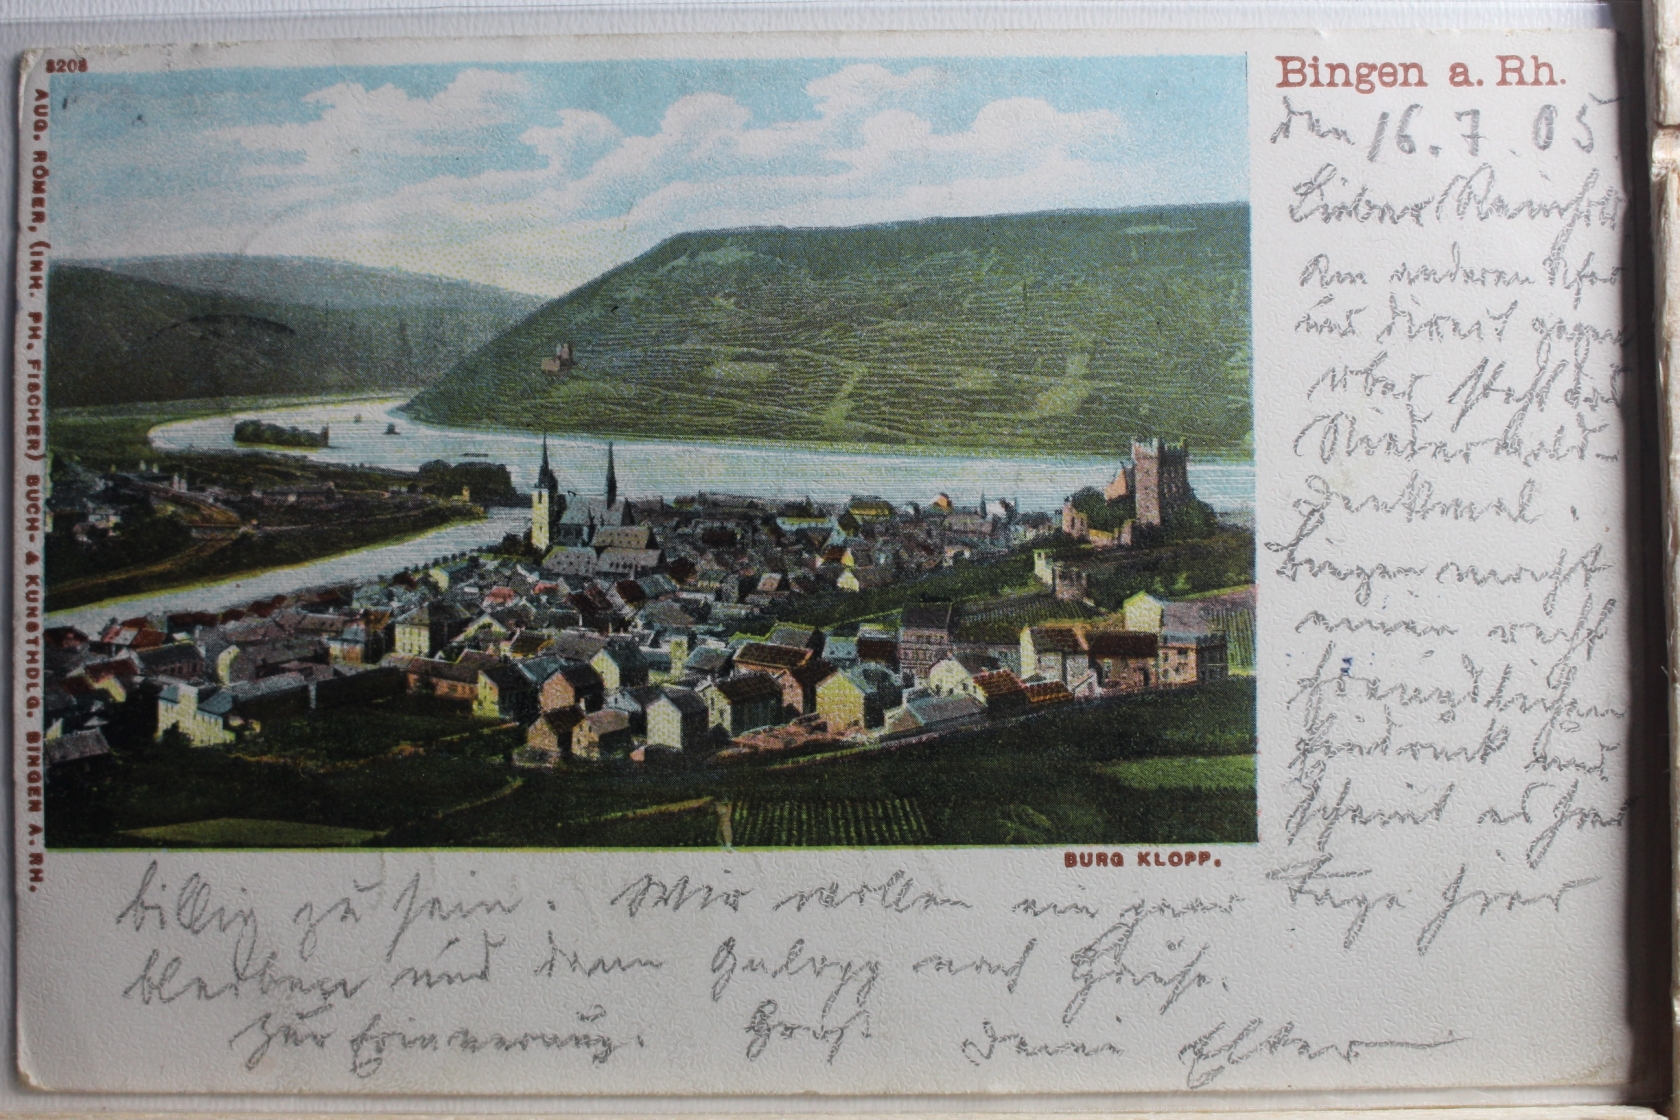 8208
AUG. RÖMER, (INH. PH. FISCHER) BUCH- & KUNSTHDLG. BINGEN A. RH.
Bingen a. Rh.
den 16. 7. 05.
Lieber Reinhold
Am anderen Ufer
uns direkt gegen
über steht das
Niederwald-
Denkmal.
Bingen macht
einen recht
freundlichen
Eindruck und
scheint es hier
BURG KLOPP.
billig zu sein. Wir wollen ein paar Tage hier
bleiben und dann Galopp nach Hause.
Zur Erinnerung. Gruß Deine Eltern